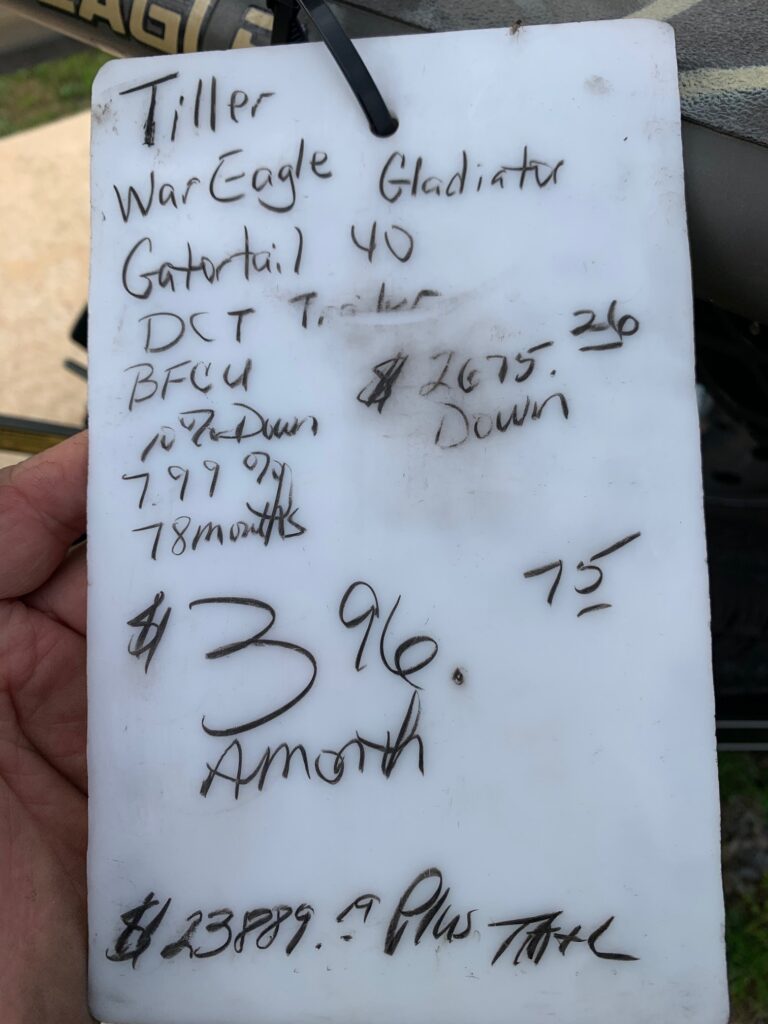 EAGLE
Tiller
WarEagle Gladiator
Gatortail 40
DCT Trailer
BFCU $2675.26
10% Down Down
7.99 %
78 months
$396.75
A month
$23889.19 Plus TT+L